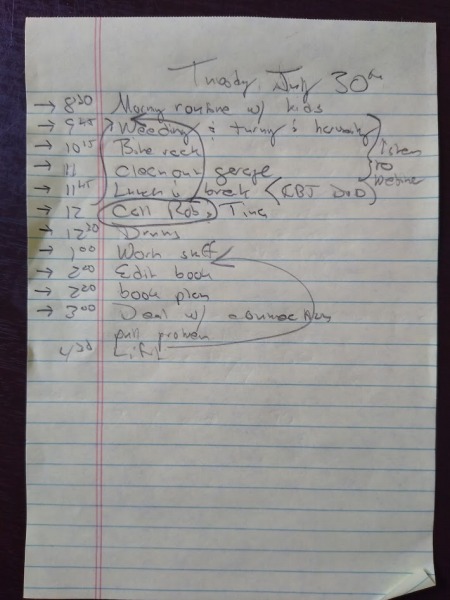 Tuesday, July 30th
→ 8:30 Morning routine w/ kids
→ 9:45 Weeding &
→ 10:15 Bike rack
→ 11 Clean out garage
→ 11:45 Lunch & break
→ 12 Call Rob, Tina
→ 12:30 Drums
→ 1:00 Work stuff
→ 2:00 Edit book
→ 2:20 book plan
→ 3:00 Deal w/
pull problem
4:30 Lift
Listen
to